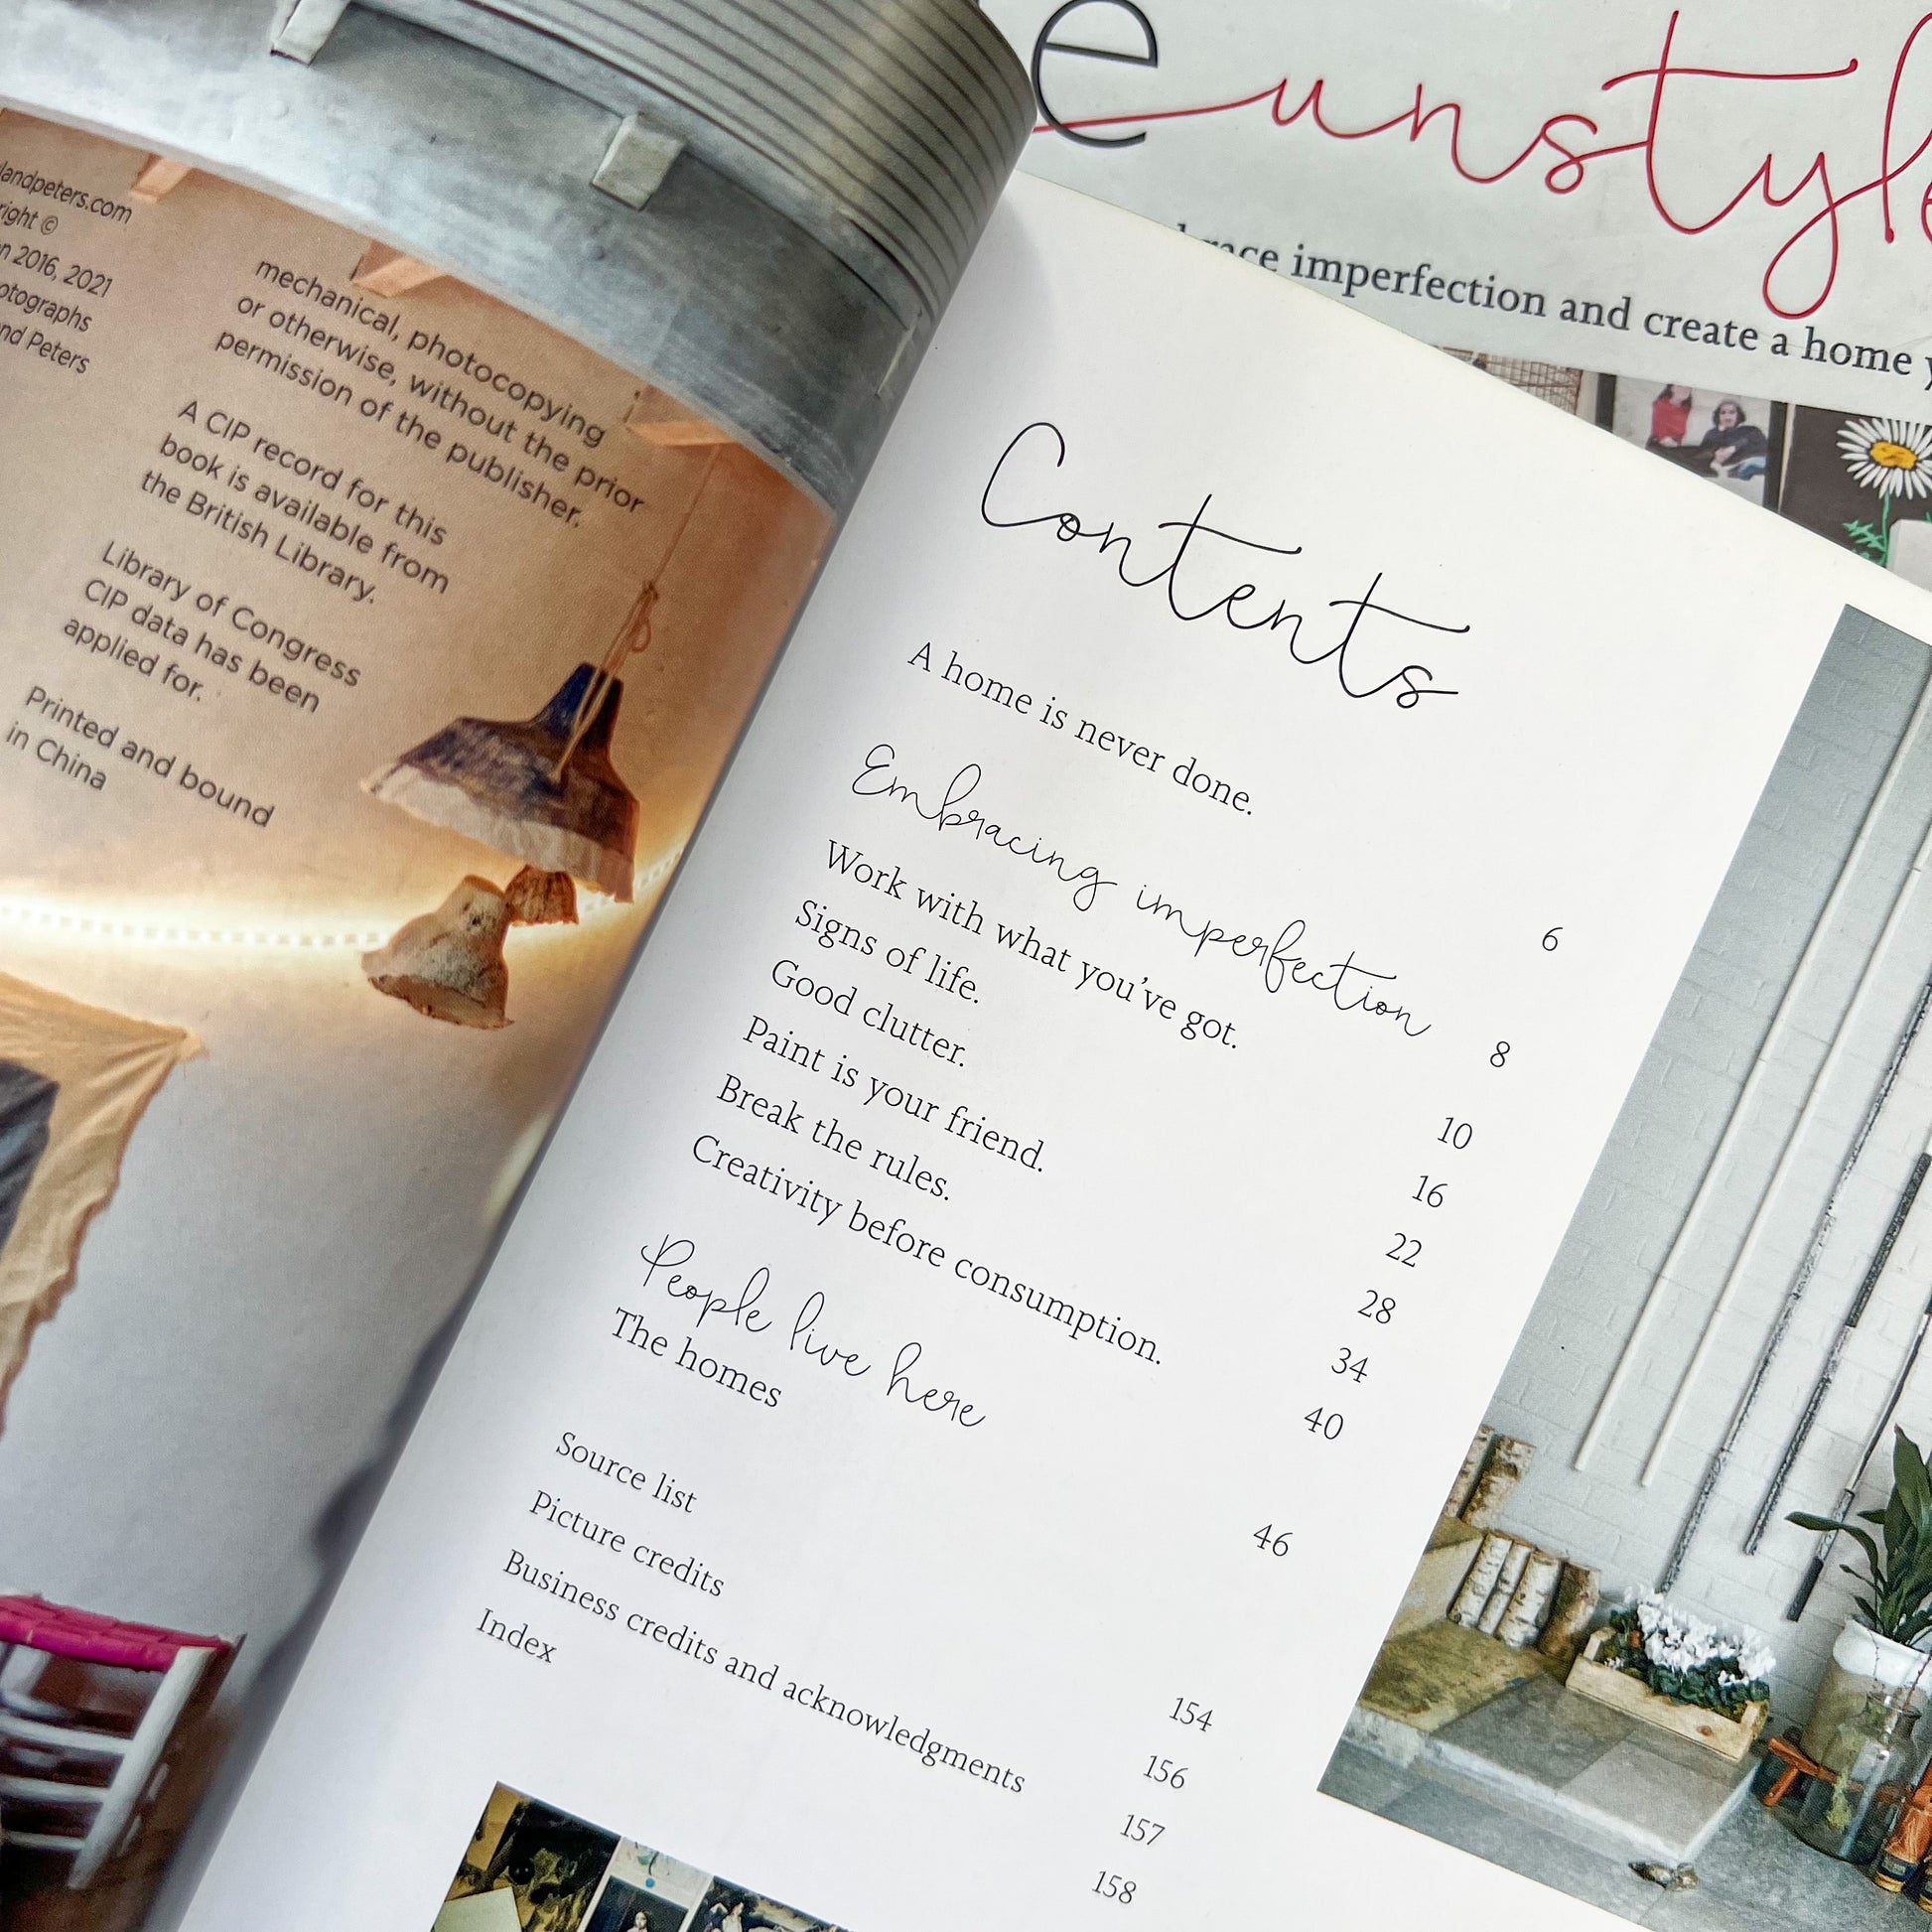 e unstyle
imperfection and create a home
landpeters.com
©
2016, 2021
Peters
mechanical, photocopying
or otherwise, without the prior
permission of the publisher.
A CIP record for this
book is available from
the British Library.
Library of Congress
CIP data has been
applied for.
Printed and bound
in China
Contents
A home is never done. 6
Embracing imperfection 8
Work with what you've got. 10
Signs of life. 16
Good clutter. 22
Paint is your friend. 28
Break the rules. 34
Creativity before consumption. 40
People live here
The homes 46
Source list 154
Picture credits 156
Business credits and acknowledgments 157
Index 158